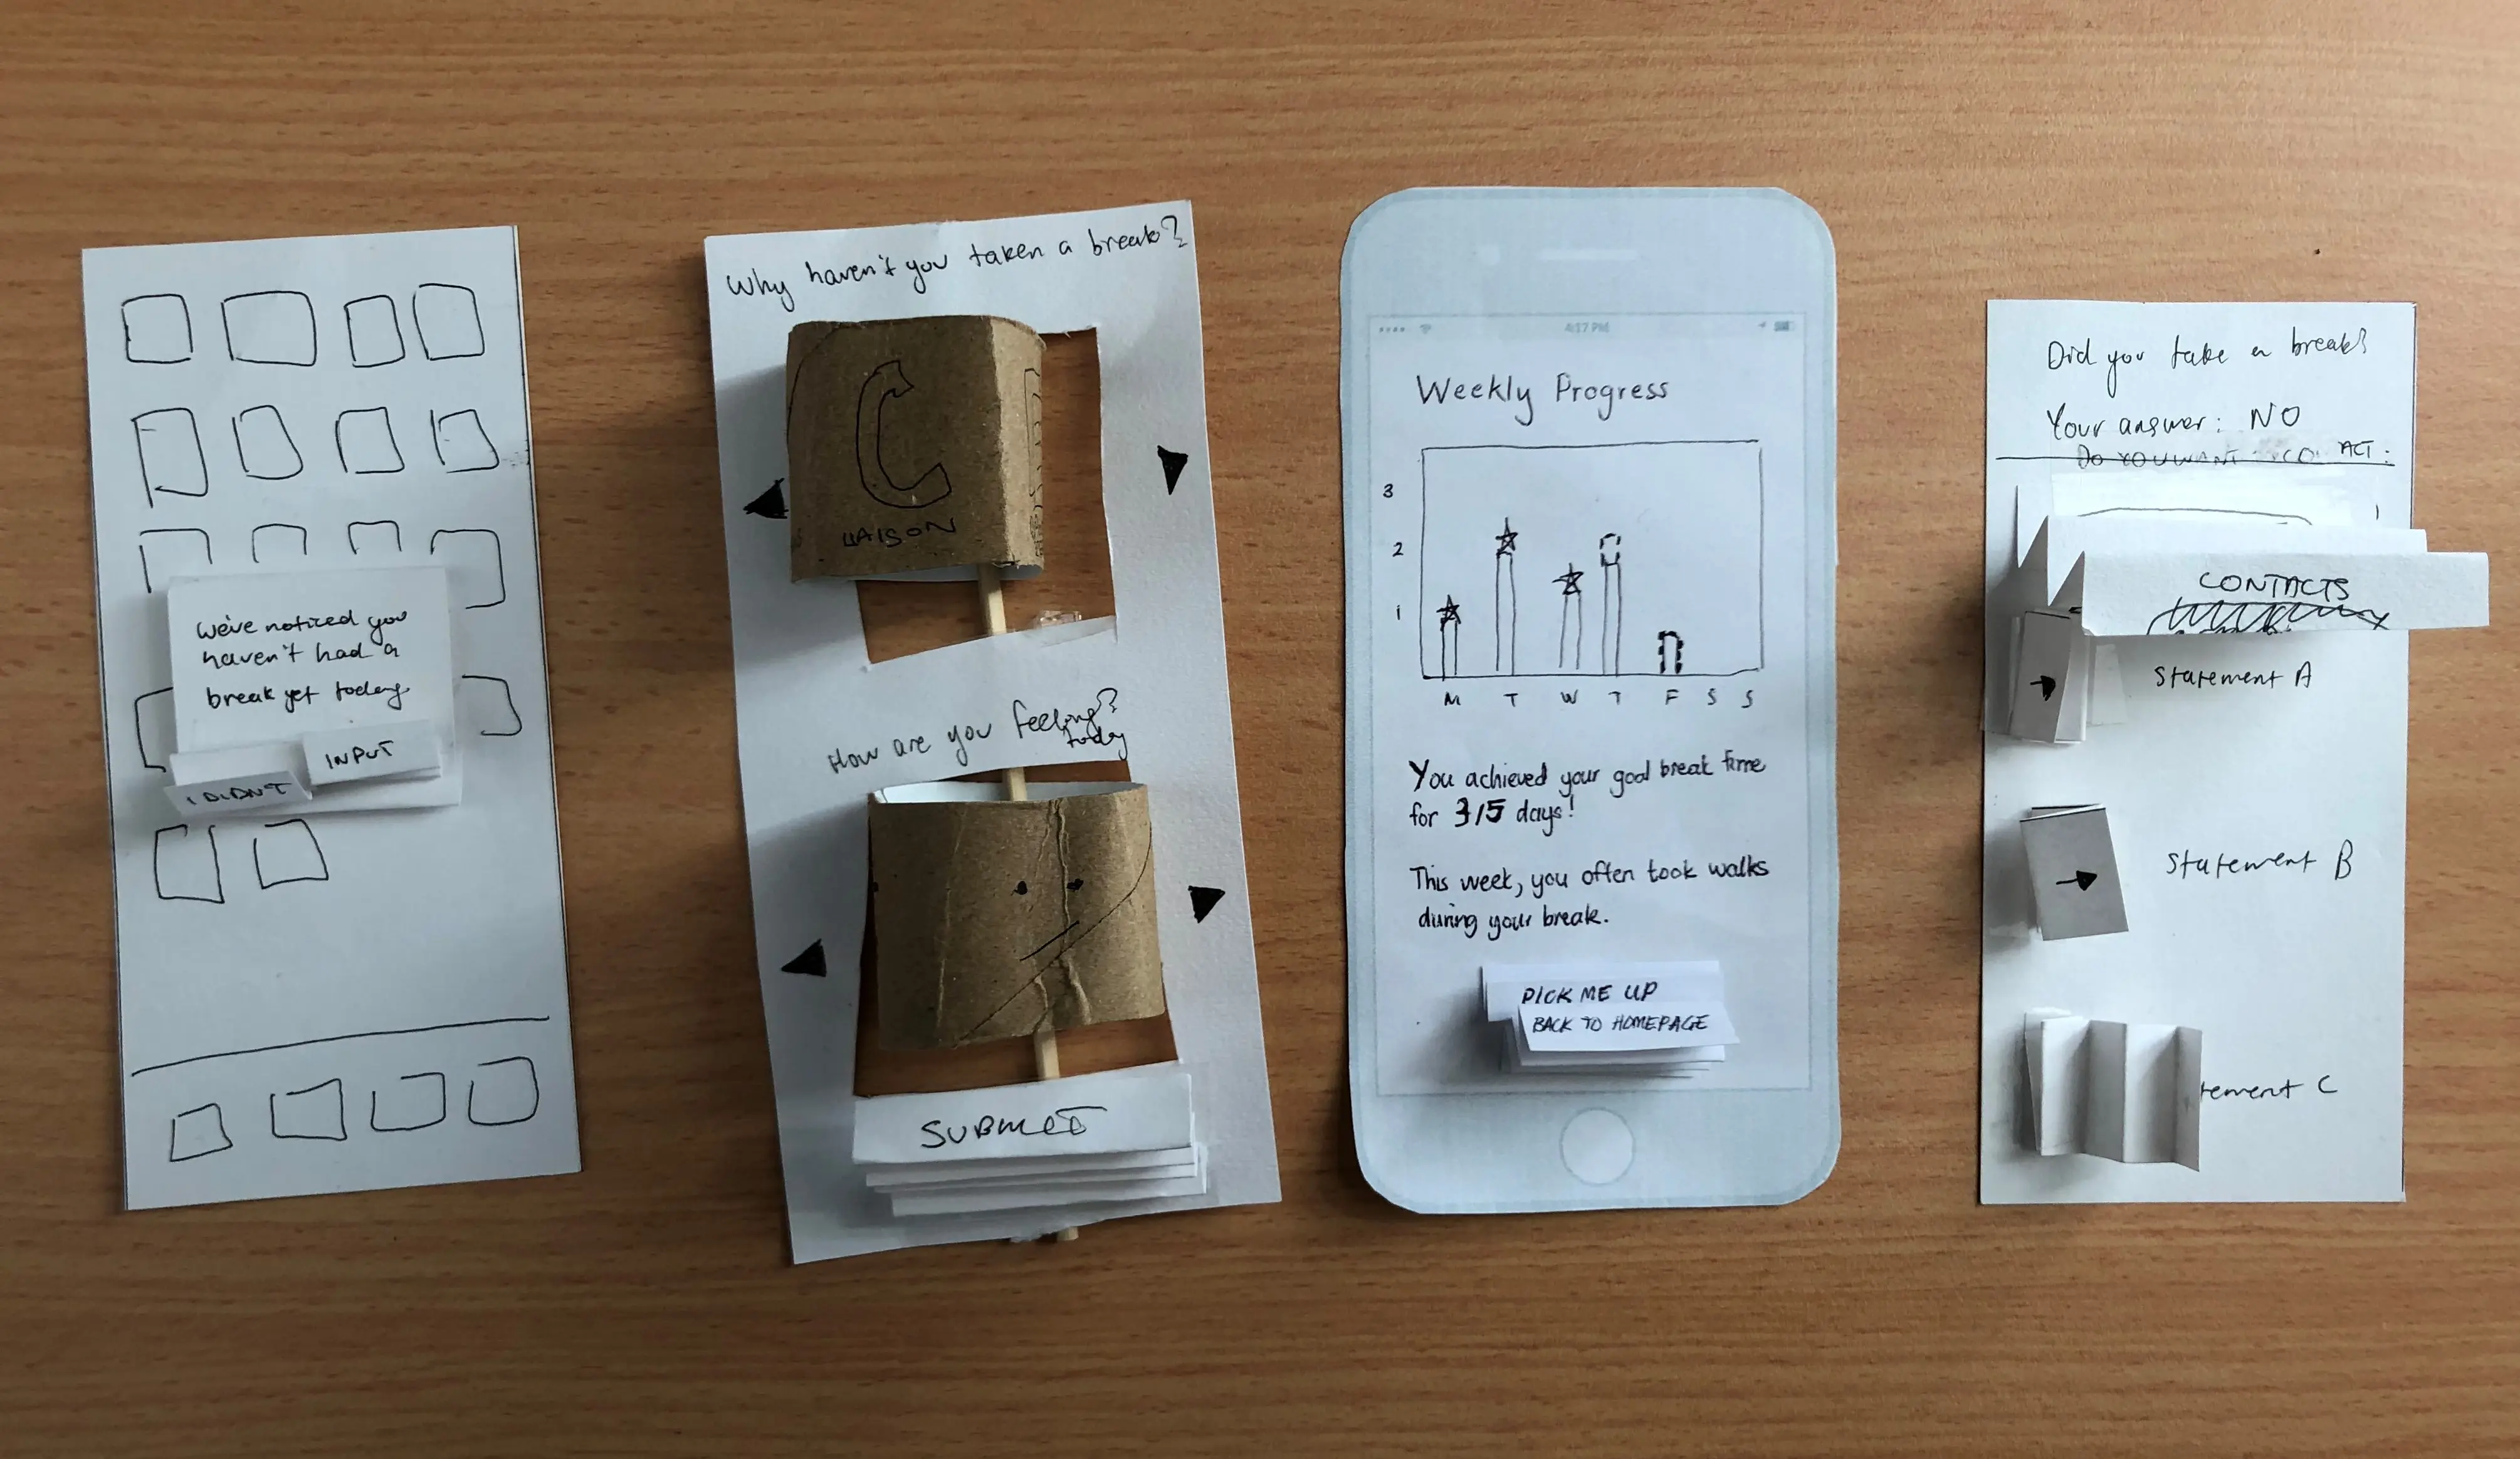 We've noticed you
haven't had a
break yet today
I DIDN'T
INPUT
Why haven't you taken a break?
LIAISON
How are you feeling?
today
SUBMIT
4:17 PM
Weekly Progress
3
2
1
M T W T F S S
You achieved your goal break time
for 3/5 days!
This week, you often took walks
during your break.
PICK ME UP
BACK TO HOMEPAGE
Did you take a break?
Your answer: NO
DO YOU WANT
CONTACTS
Statement A
Statement B
tement C